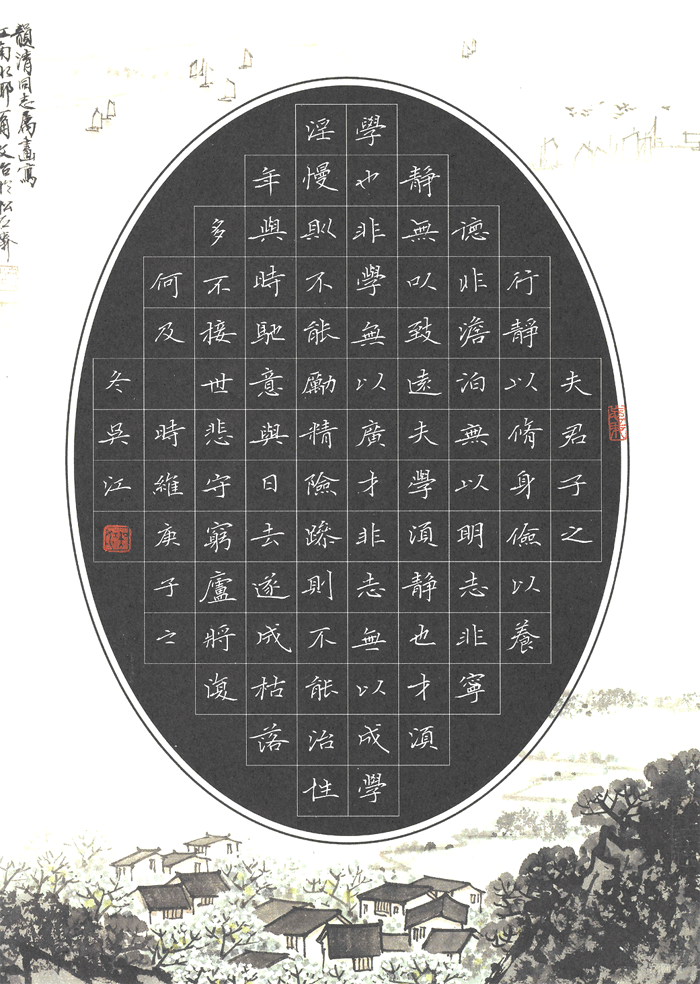 夫君子之
行靜以脩身儉以養
德非澹泊無以明志非寧
靜無以致遠夫學須静也才須
學也非學無以廣才非志無以成學
淫慢則不能勵精險躁則不能治性
年與時馳意與日去遂成枯落
多不接世悲守窮廬將復
何及 時維庚子之
冬吳江
韻清同志属畫寫